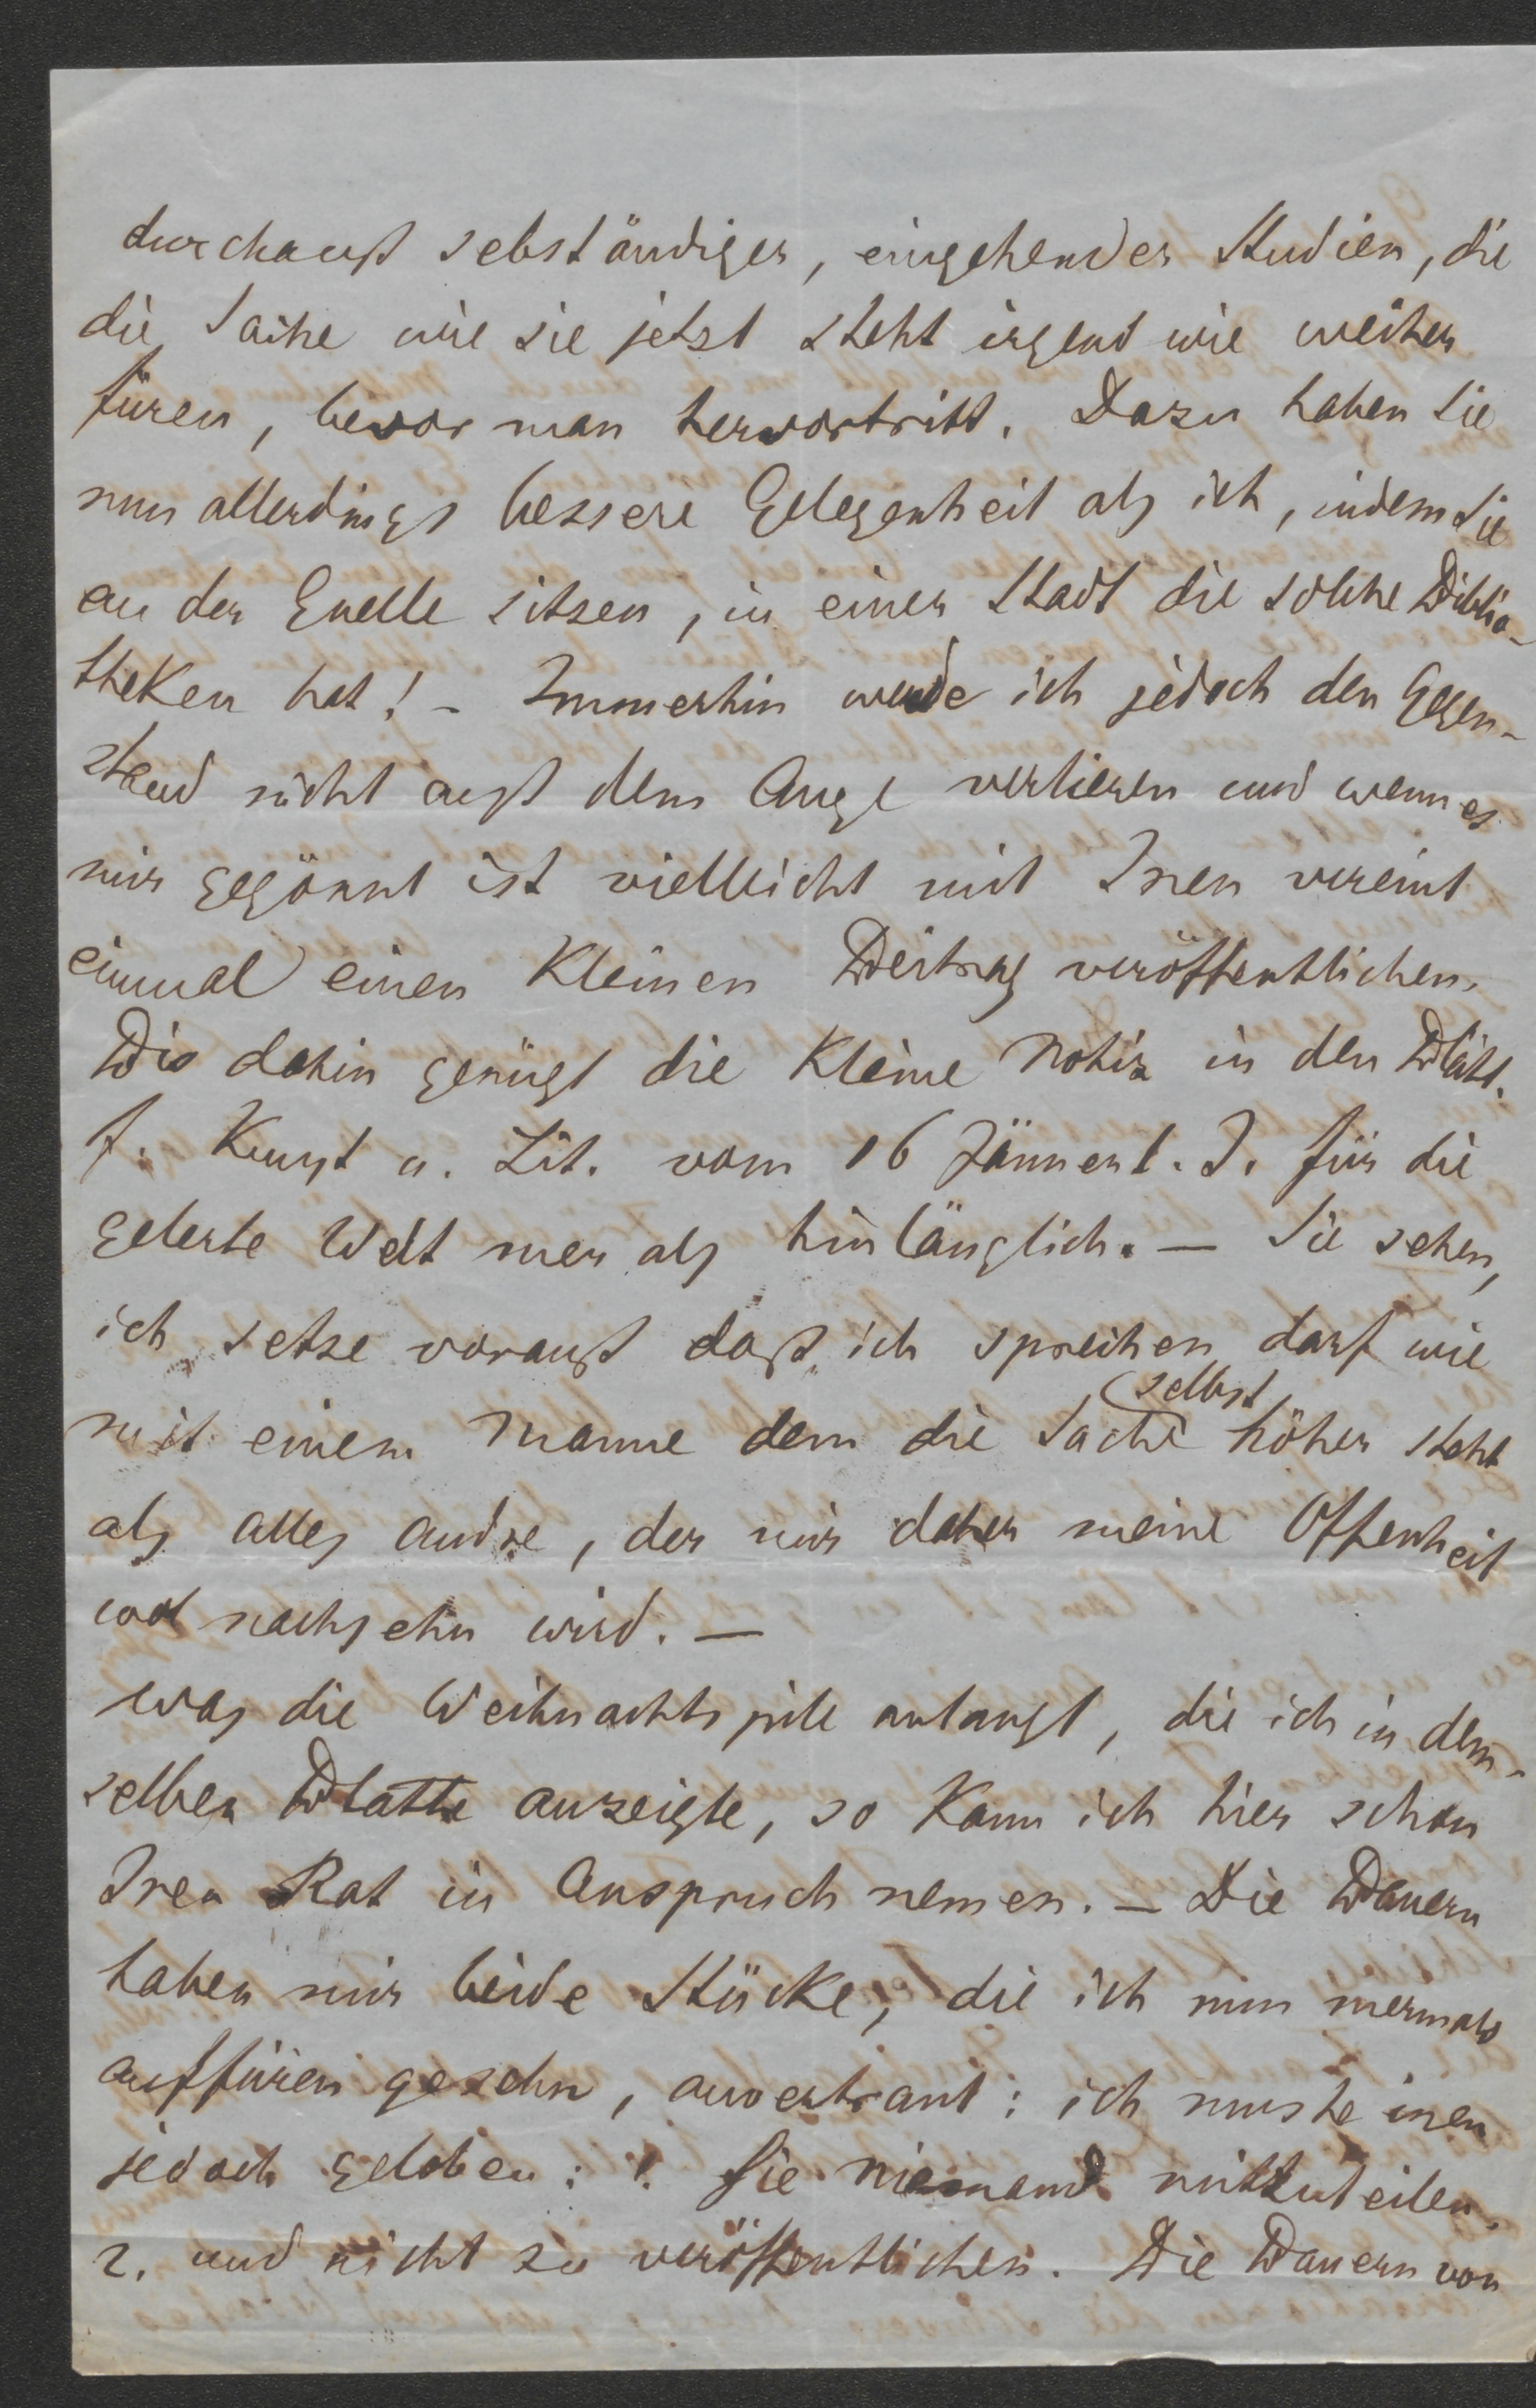 durchauß sebständiger, eingehender Studien, die
die Sache wie sie jetzt steht irgend wie weiter
füren, bevor man hervortritt. Dazu haben Sie
nun allerdings bessere Gelegenheit als ich, indem Sie
an der Quelle sitzen, in einer Stadt die solche Biblio-
theken hat! – Immerhin werde ich jedoch den Gegen-
stand nicht auß dem Auge verlieren und wenn es
mir gegönnt ist vielleicht mit Inen vereint
einmal einen kleinen Beitrag veröffentlichen.
Bis dahin genügt die kleine Notiz in den Blätt.
f. Kunst u. Lit. vom 16 Jänner l. J. für die
gelerte Welt mer als hinlänglich. — Sie sehen,
ich setze vorauß daß ich sprechen darf wie
selbst
mit einem Manne dem die Sache höher steht
als alles andre, der mir daher meine Offenheit
wol nachsehn wird. —
was die Weihnachtspile anlangt, die ich in dem-
selben Blatte anzeigte, so kann ich hier schon
Iren Rat in Anspruch nemen. – Die Bauern
haben mir beide Stücke, die ich nun mermals
auffüren gesehn, anvertraut: ich muste inen
jedoch geloben: 1. Sie niemand mitzuteilen.
2. und nicht zu veröffentlichen. Die Bauern von